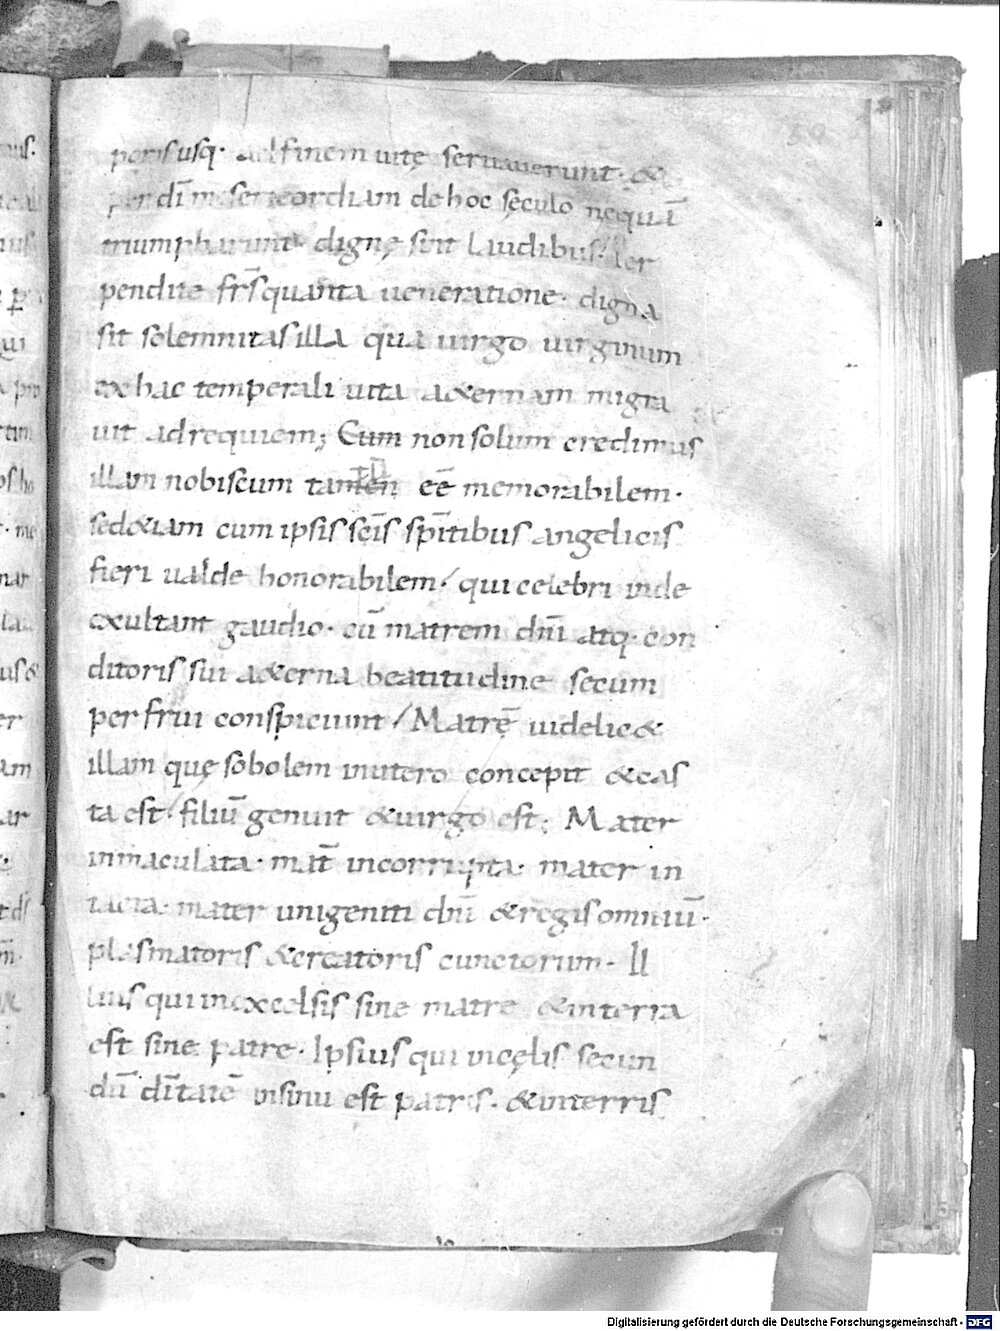 porisusq· ad finem uitę seruauerunt· &
per dī misericordiam de hoc sęculo nequā
triumpharunt· dignę sint laudibus· per
pendite fr̄s quanta ueneratione· digna
sit solemnitas illa qua uirgo uirginum
ex hac temperali uita a&ernam migra
uit ad requiem; Eum non solum credimus
illam nobiscum tamen eē memorabilem·
sed&iam cum ipsis sc̄is sp̄itibus angelicis
fieri ualde honorabilem· qui celebri inde
exultant gaudio· cū matrem dn̄i atq· con
ditoris sui a&erna beatitudine secum
perfrui conspiciunt / Matrē uidelic&
illam quę sobolem inutero concepit &cas
ta est· filiū genuit &uirgo est; Mater
inmaculata· mat̄ incorrupta· mater in
tacta· mater unigeniti dn̄i &regis omniū·
plasmatoris &creatoris cunctorum· Il
lius qui inexcelsis sine matre &interra
est sine patre· Ipsius qui incęlis secun
dū dīitatē insinu est patris· &interris
Digitalisierung gefördert durch die Deutsche Forschungsgemeinschaft - DFG